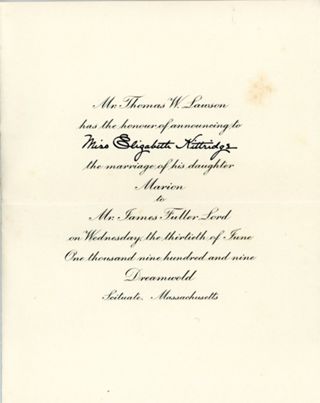 Mr. Thomas W. Lawson
has the honour of announcing to
Miss Elizabeth Kittridge
the marriage of his daughter
Marion
to
Mr. James Fuller Lord
on Wednesday, the thirtieth of June
One thousand nine hundred and nine
Dreamwold
Scituate, Massachusetts